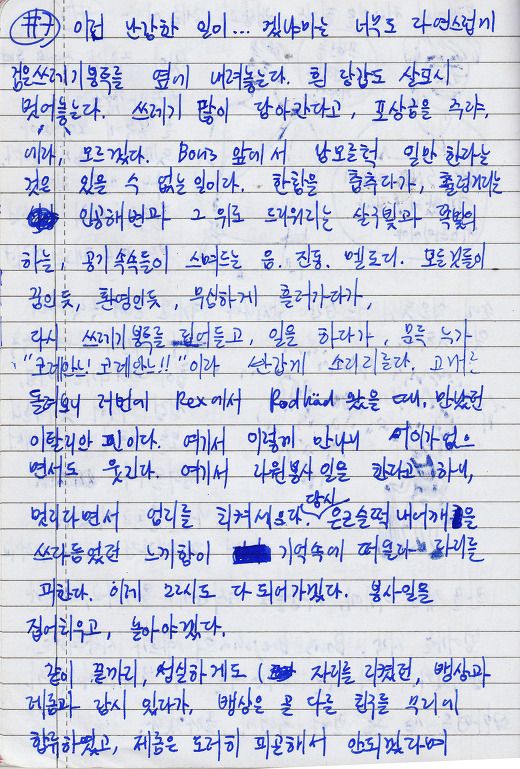 #7 이런 난감한 일이... 컸냐마는 너무도 자연스럽게
검은쓰레기봉투를 옆에 내려놓는다. 흰 장갑도 살포시
벗어놓는다. 쓰레기 많이 담아간다고, 포상금을 주랴,
에라, 모르겠다. Boris 앞에서 남모르척 일만 한다는
것은 있을 수 없는 일이다. 한참을 춤추다가, 출렁거리는
인공해변과 그 위로 드리워지는 살구빛과 쪽빛의
하늘, 공기 속속들이 스며드는 음. 진동. 멜로디. 모든것들이
꿈인듯, 환영인듯, 무심하게 흘러가다가,
다시 쓰레기봉투를 집어들고, 일을 하다가, 문득 누가
"코레안느! 코레안느!!" 이라 소리지른다. 고개를
돌려보니 저번에 Rex에서 Rodhad 왔을 때, 만났던
이탈리안 찐이다. 여기서 이렇게 만나니 어이가 없으
면서도 웃긴다. 여기서 자원봉사 일을 한다고 하니,
멋지다면서 엄지를 치켜세운다. 당시 은근슬쩍 내 어깨를
쓰다듬었던 느끼함이 기억속에 떠올라 자리를
피한다. 이제 22시도 다 되어가겠다. 봉사일을
집어치우고, 놀아야겠다.
같이 끝까지, 성실하게도 자리를 지켰던, 뱅상과
제롬과 잠시 있다가, 뱅상은 곧 다른 친구들 무리에
합류하였고, 제롬은 도저히 피곤해서 안되겠다며